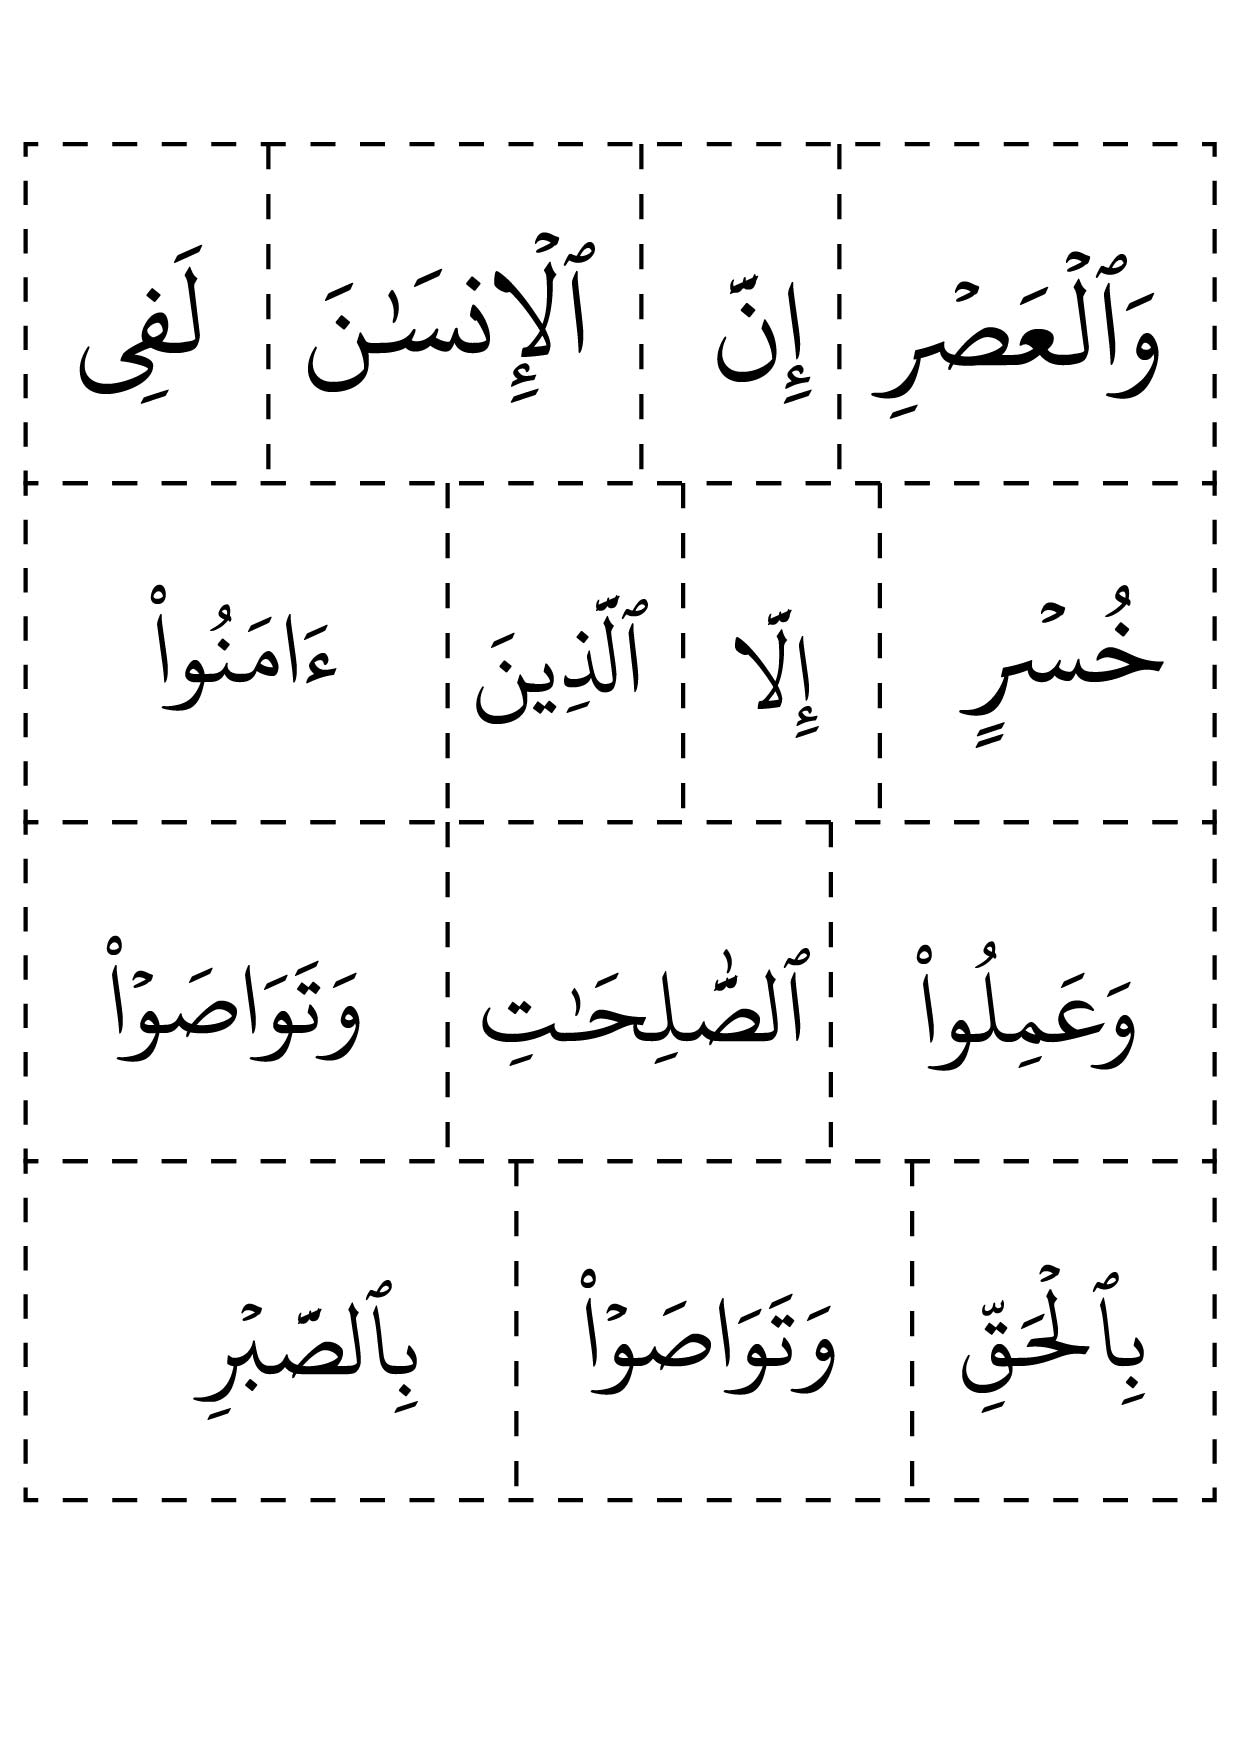 وَٱلۡعَصۡرِ إِنَّ ٱلۡإِنسَـٰنَ لَفِی
خُسۡرٍ إِلَّا ٱلَّذِینَ ءَامَنُوا۟
وَعَمِلُوا۟ ٱلصَّـٰلِحَـٰتِ وَتَوَاصَوۡا۟
بِٱلۡحَقِّ وَتَوَاصَوۡا۟ بِٱلصَّبۡرِ